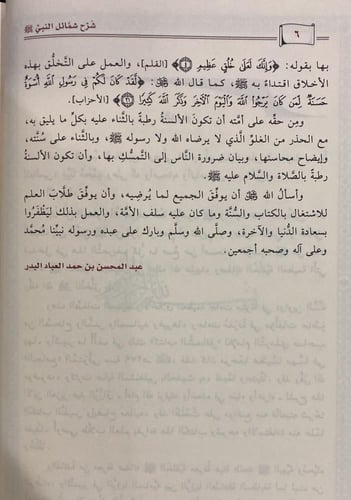 ٦
شَرْح شمَائل النبيّ ﷺ
بها بقوله: ﴿وَإِنَّكَ لَعَلَىٰ خُلُقٍ عَظِيمٍ ٤﴾ [القلم]، والعمل على التخلُّق بهذه
الأخلاق اقتداءً به ﷺ، كما قال الله ﷻ: ﴿لَّقَدْ كَانَ لَكُمْ فِي رَسُولِ اللَّهِ أُسْوَةٌ
حَسَنَةٌ لِّمَن كَانَ يَرْجُوا اللَّهَ وَالْيَوْمَ الْآخِرَ وَذَكَرَ اللَّهَ كَثِيرًا ٢١﴾ [الأحزاب].
ومِن حقِّه على أمَّته أن تكونَ الألسنةُ رطبةً بالثَّناء عليه بكلِّ ما يليق به،
مع الحذر من الغلوِّ الَّذي لا يرضاه الله ولا رسوله ﷺ، وبالثَّناء على سُنَّته،
وإيضاح محاسنها، وبيان ضرورة النَّاس إلى التمسُّك بها، وأن تكون الألسنةُ
رطبةً بالصَّلاة والسَّلام عليه ﷺ.
وأسألُ الله ﷻ أن يوفِّقَ الجميع لما يُرضِيه، وأن يوفِّقَ طلَّابَ العلم
للاشتغال بالكتاب والسُّنَّة وما كان عليه سلف الأمَّة، والعمل بذلك ليَظْفَرُوا
بسعادة الدُّنيا والآخرة، وصلَّى الله وسلَّم وبارك على عبده ورسوله نبيِّنا مُحمَّد
وعلى آله وصحبه أجمعين.
عبد المحسن بن حمد العباد البدر